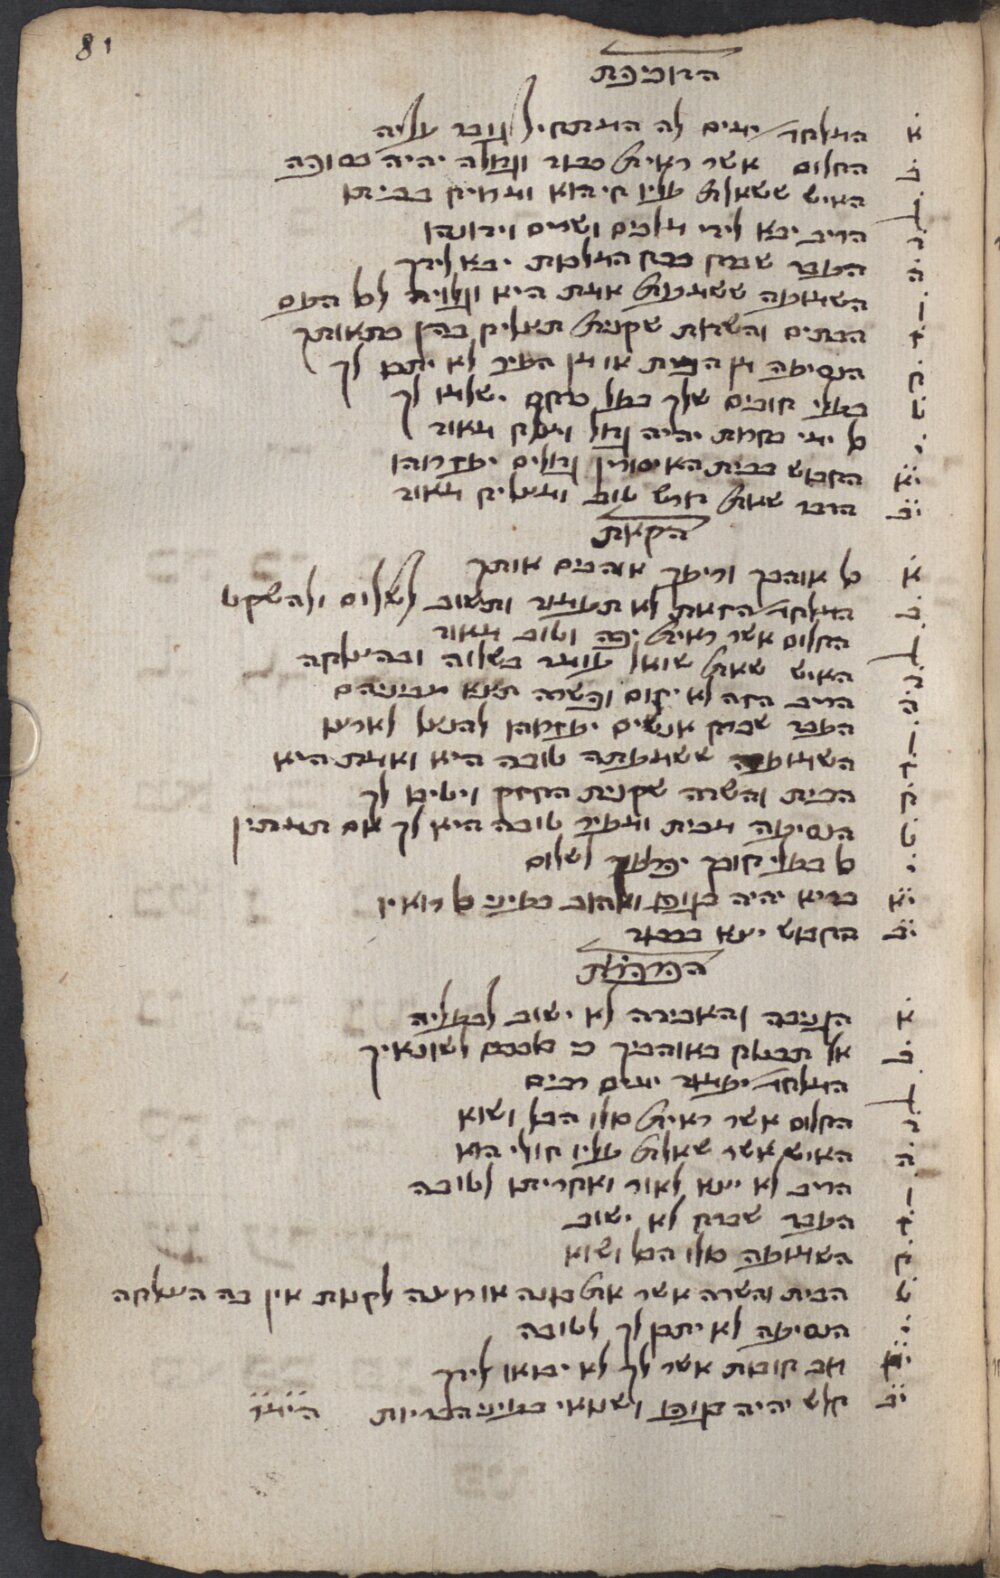 81
הדוכיפת
א המלחמה ימים לה המתחיל גובר עליה
ב החלום אשר ראית כבוד וגדולה יהיה סופה
ג האיש ששאלת עליו חי הוא ומרויח בביתו
ד הריב יבא לידי מלכים ושרים וידונהו
ה העבד שברח ברח המלכות יבא לידך
ו השמועה ששמעת אמת היא וגלוית לכל העם
ז הבתים והשדות שקנית תצליח בהן כתאותך
ח הנסיעה מן הבית או מן העיר לא יתכן לך
ט בעלי חובים שלך בעל כרחם ישלמו לך
י כל ימי בחרות יהיה גדול ומצליח מאוד
יא החבוש בבית האיסורין גדולים יעזרוהו
יב הדבר שאת חדש טוב ומצליח מאוד
הקאת
א כל אוהבך וריעך אוהבים אותך
ב המלחמה הזאת לא תעמוד ותשוב לשלום ולהשקט
ג החלום אשר ראית יפה וטוב מאוד
ד האיש שאת שואל עומד בשלוה ובהצלחה
ה הריב הזה לא יקום ופשרה תצא מביניהם
ו העבד שברח אנשים יעזרוהו להנצל לארצו
ז השמועה ששמעתה טובה היא ואמת היא
ח הבית והשדה שקנית החזק ויטיבו לך
ט הנסיעה מבית ומעיר טובה היא לך אם תמתין
י כל בעלי חובך יפרעך לשלום
יא בריא יהיה בגופו ואהוב בעיני כל רואיו
יב החבוש יצא בכבוד
הברבורת
א הגניבה והאבידה לא ישוב לבעליה
ב אל תבטח באוהביך כי שונאיך
ג המלחמה יעמוד ימים רבים
ד החלום אשר ראית כולו הבל ושוא
ה האיש אשר שאלת עליו חולי הוא
ו הריב לא יצא לאור ואחריתו לטובה
ז העבד שברח לא ישוב
ח השמועה כולו הבל ושוא
ט הבית והשדה אשר את בונה או רוצה לקנות אין בה הצלחה
י הנסיעה לא יתכן לך לטובה
יא חובות אשר לך לא יבואו לידך
יב חלש יהיה בגופו ושנאוי בעיני הבריות